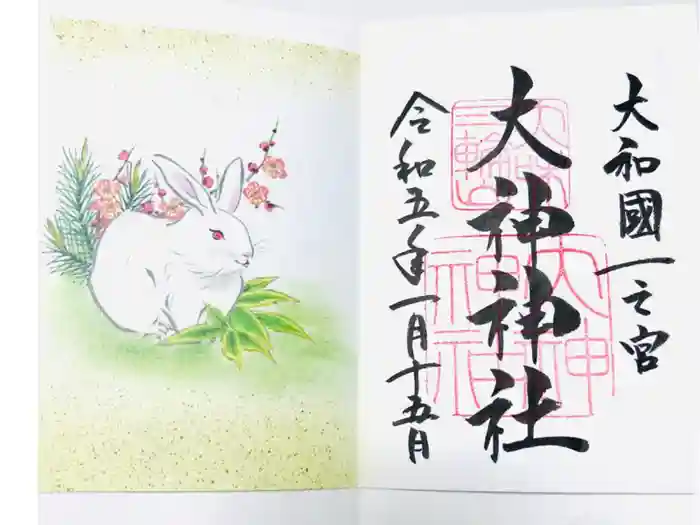 大和國一之宮
大神神社
令和五年一月十五日
三輪山
大神神社